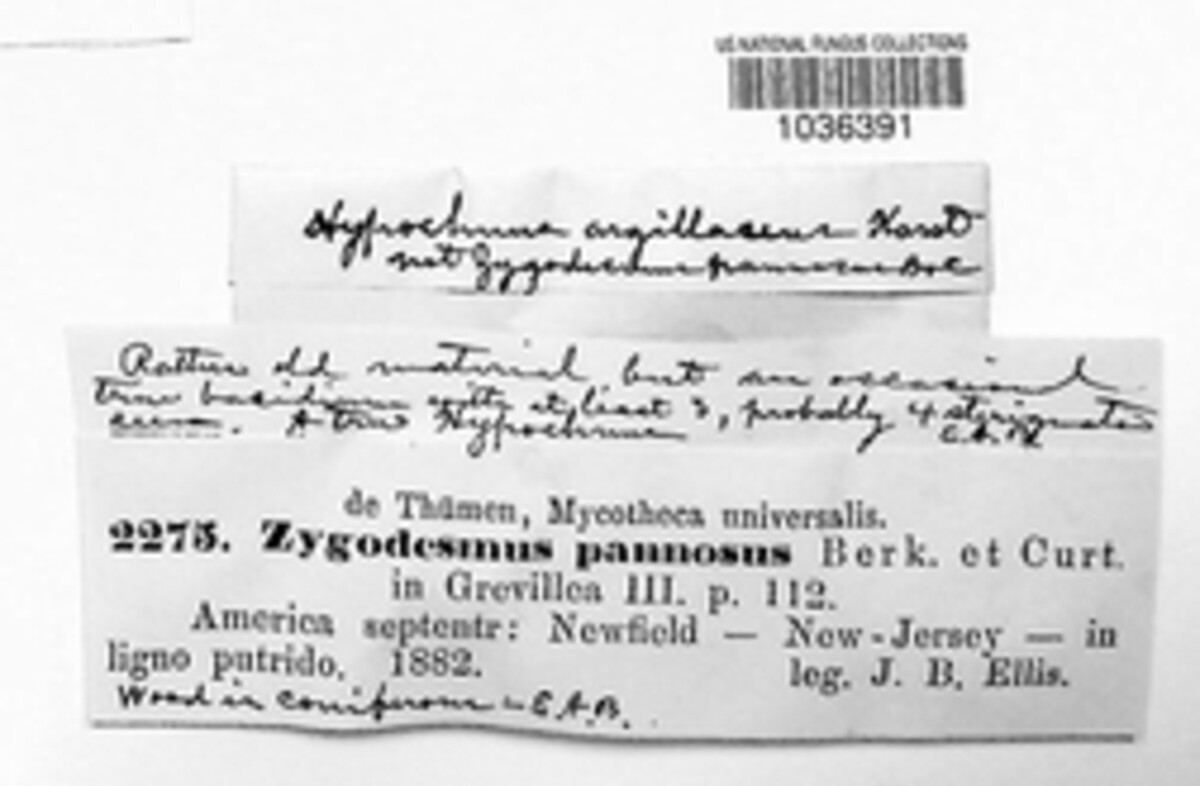 US NATIONAL FUNGUS COLLECTIONS
1036391
Hypochnus argillaceus Karst
not Zygodesmus pannosus B&C
Rather old material, but an occasional
true basidium with at least 3, probably 4 sterigmata
seen. A true Hypochnus
de Thümen, Mycotheca universalis.
2275. Zygodesmus pannosus Berk. et Curt.
in Grevillea III. p. 112.
America septentr: Newfield — New-Jersey — in
ligno putrido. 1882. leg. J. B. Ellis.
Wood is coniferous - E.A.B.